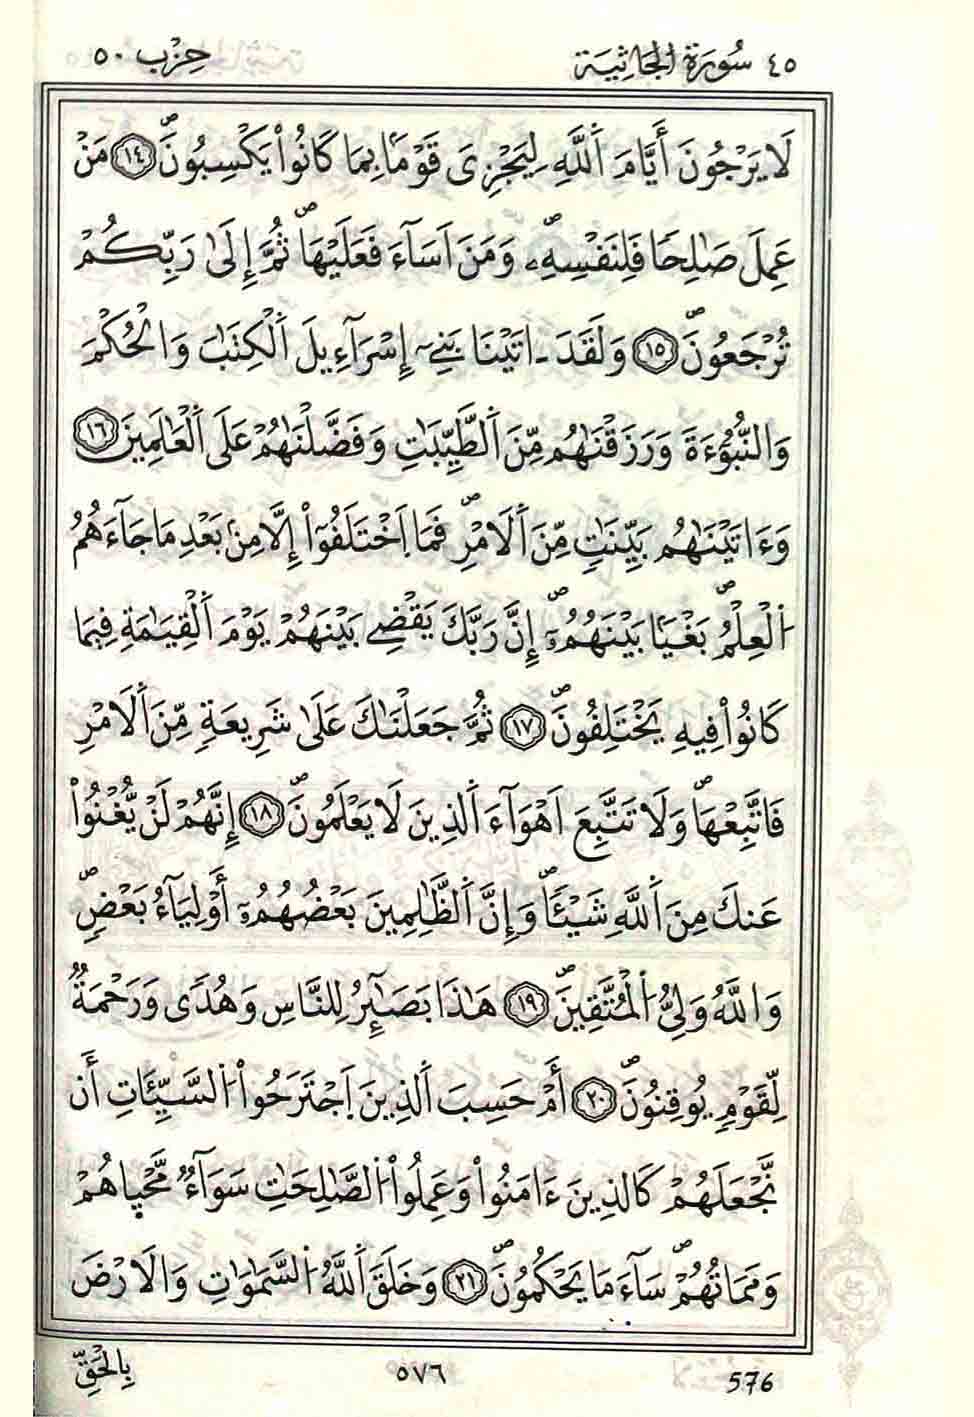 ٤٥ سُورَةُ الْجَاثِيَة حِزْب ٥٠
لَا يَرْجُونَ أَيَّامَ اَ۬للَّهِ لِيَجْزِيَ قَوْمَاۢ بِمَا كَانُواْ يَكْسِبُونَۖ ١٤ مَنْ
عَمِلَ صَٰلِحاٗ فَلِنَفْسِهِۦۖ وَمَنَ اَسَآءَ فَعَلَيْهَاۖ ثُمَّ إِلَىٰ رَبِّكُمْ
تُرْجَعُونَۖ ١٥ وَلَقَدَ اٰتَيْنَا بَنِےٓ إِسْرَآءِيلَ اَ۬لْكِتَٰبَ وَالْحُكْمَ
وَالنُّبُوٓءَةَ وَرَزَقْنَٰهُم مِّنَ اَ۬لطَّيِّبَٰتِ وَفَضَّلْنَٰهُمْ عَلَى اَ۬لْعَٰلَمِينَ ١٦
وَءَاتَيْنَٰهُم بَيِّنَٰتٖ مِّنَ اَ۬لَامْرِۖ فَمَا اَ۪خْتَلَفُوٓاْ إِلَّا مِنۢ بَعْدِ مَا جَآءَهُمُ
اُ۬لْعِلْمُۖ بَغْيَاۢ بَيْنَهُمُۥٓۖ إِنَّ رَبَّكَ يَقْضِے بَيْنَهُمْ يَوْمَ اَ۬لْقِيَٰمَةِ فِيمَا
كَانُواْ فِيهِ يَخْتَلِفُونَۖ ١٧ ثُمَّ جَعَلْنَٰكَ عَلَىٰ شَرِيعَةٖ مِّنَ اَ۬لَامْرِ
فَاتَّبِعْهَاۖ وَلَا تَتَّبِعَ اَهْوَآءَ اَ۬لذِينَ لَا يَعْلَمُونَۖ ١٨ إِنَّهُمْ لَنْ يُّغْنُواْ
عَنكَ مِنَ اَ۬للَّهِ شَيْـٔاٗۖ وَإِنَّ اَ۬لظَّٰلِمِينَ بَعْضُهُمُۥٓ أَوْلِيَآءُ بَعْضٖۖ
وَاللَّهُ وَلِيُّ اُ۬لْمُتَّقِينَۖ ١٩ هَٰذَا بَصَٰٓئِرُ لِلنَّاسِ وَهُدىٗ وَرَحْمَةٞ
لِّقَوْمٖ يُوقِنُونَۖ ٢٠ أَمْ حَسِبَ اَ۬لذِينَ اَ۪جْتَرَحُواْ اُ۬لسَّيِّـَٔاتِ أَن
نَّجْعَلَهُمْ كَالذِينَ ءَامَنُواْ وَعَمِلُواْ اُ۬لصَّٰلِحَٰتِ سَوَآءٞ مَّحْي۪اهُمْ
وَمَمَاتُهُمْۖ سَآءَ مَا يَحْكُمُونَۖ ٢١ وَخَلَقَ اَ۬للَّهُ اُ۬لسَّمَٰوَٰتِ وَالَارْضَ
بِالْحَقِّ
٥٧٦ 576